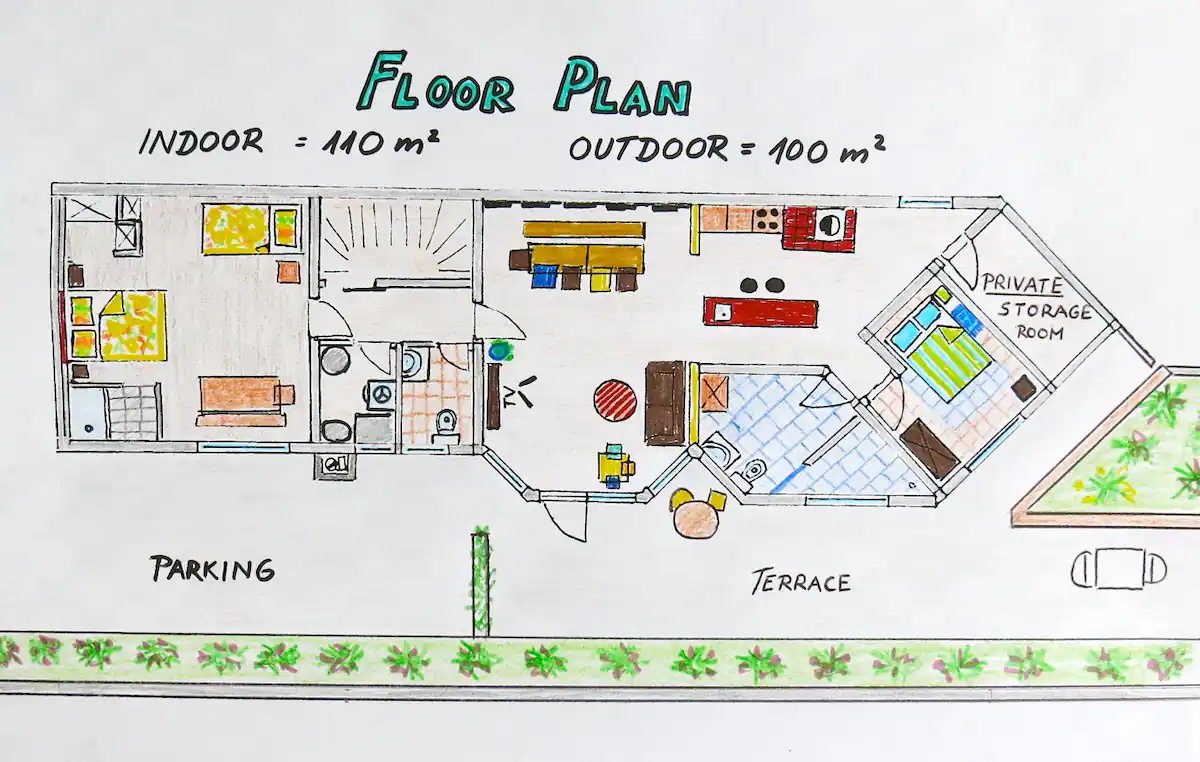 FLOOR PLAN
INDOOR = 110 m²
OUTDOOR = 100 m²
PRIVATE
STORAGE
ROOM
TV
PARKING
TERRACE